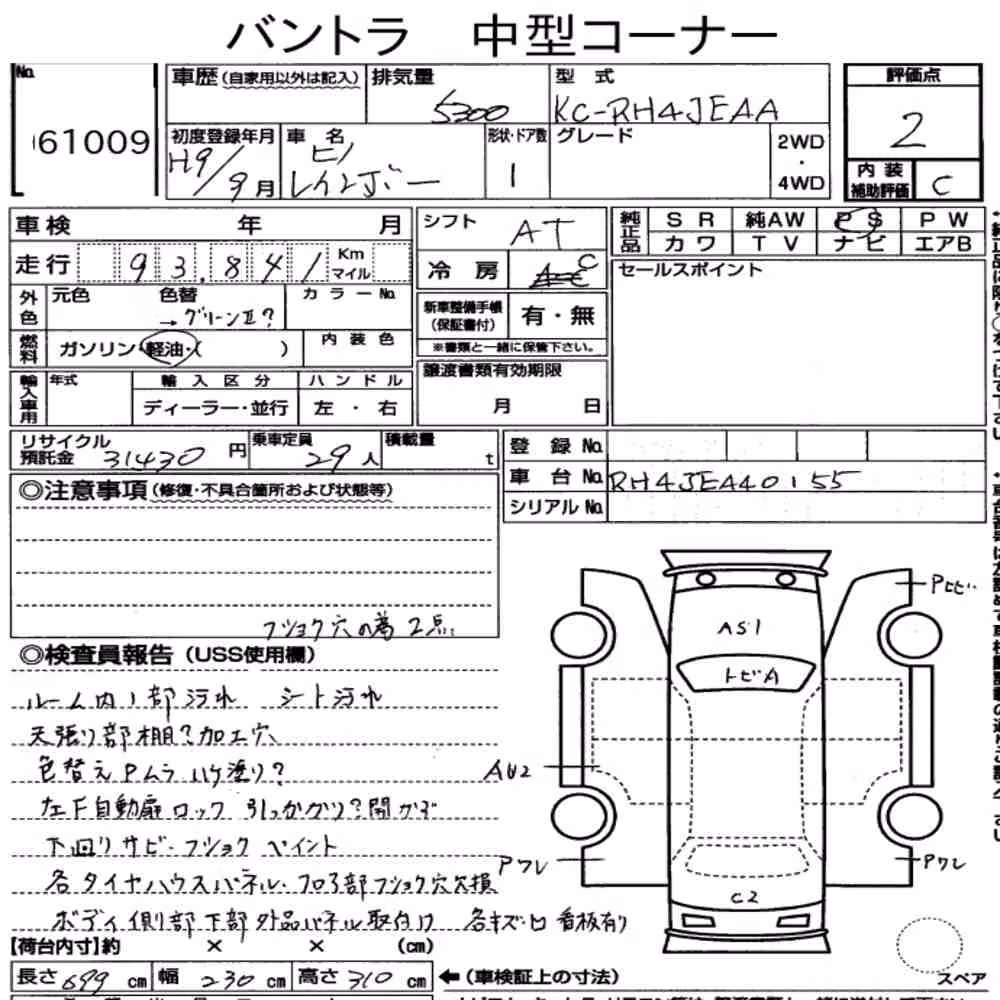 バントラ 中型コーナー
No.
61009
車歴(自家用以外は記入)
排気量
5300
型式
KC-RH4JEAA
評価点
2
内装補助評価
C
初度登録年月
H9/9月
車名
ヒノ
レインボー
形状・ドア数
1
グレード
2WD
・
4WD
車検 年 月
走行 93,841 Km マイル
外色
元色
色替
→グリーンII?
カラーNo.
燃料
ガソリン・軽油・( )
内装色
輸入車用
年式
輸入区分
ディーラー・並行
ハンドル
左・右
シフト
AT
冷房
AC
新車整備手帳
(保証書付)
有・無
※書類と一緒に保管下さい。
譲渡書類有効期限
月 日
純正品
SR 純AW PS PW
カワ TV ナビ エアB
セールスポイント
リサイクル預託金 31430円
乗車定員 29人
積載量 t
登録No.
車台No. RH4JEA40155
シリアルNo.
◎注意事項(修復・不具合箇所および状態等)
フショク穴の為2点
◎検査員報告(USS使用欄)
ルーム内1部汚れ シート汚れ
天張り部棚?加工穴
色替えPムラ ハケ塗り?
左F自動扉ロック 引っかかり?開かず
下回りサビ・フショク ペイント
各タイヤハウスパネル・フロア部フショク穴欠損
ボディ側部下部外品パネル取付け 各キズ・凹 看板有り
Pヒビ
AS1
トビA
AU2
Pワレ
Pワレ
C2
【荷台内寸】約 × × (cm)
長さ699cm 幅230cm 高さ310cm
←(車検証上の寸法)
スペア